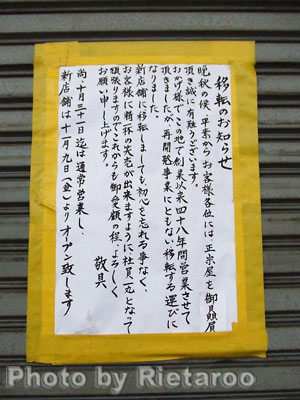 移転のお知らせ
晩秋の候、平素からお客様各位には正宗屋を御贔屓
頂き誠に有難うございます。
おかげ様で、この地で創業以来四十八年間営業させて
頂きましたが、再開発事業にともない移転する運びに
なりました。
新店舗に移転しましても、初心を忘れる事なく、
お客様に精一杯の笑売が出来ますように、社員一丸となって
頑張りますのでこれからも御愛顧の程、よろしく
お願い申し上げます。
敬具
尚、十月三十一日迄は通常営業し、
新店舗は十一月九日(金)よりオープン致します
Photo by Rietaroo